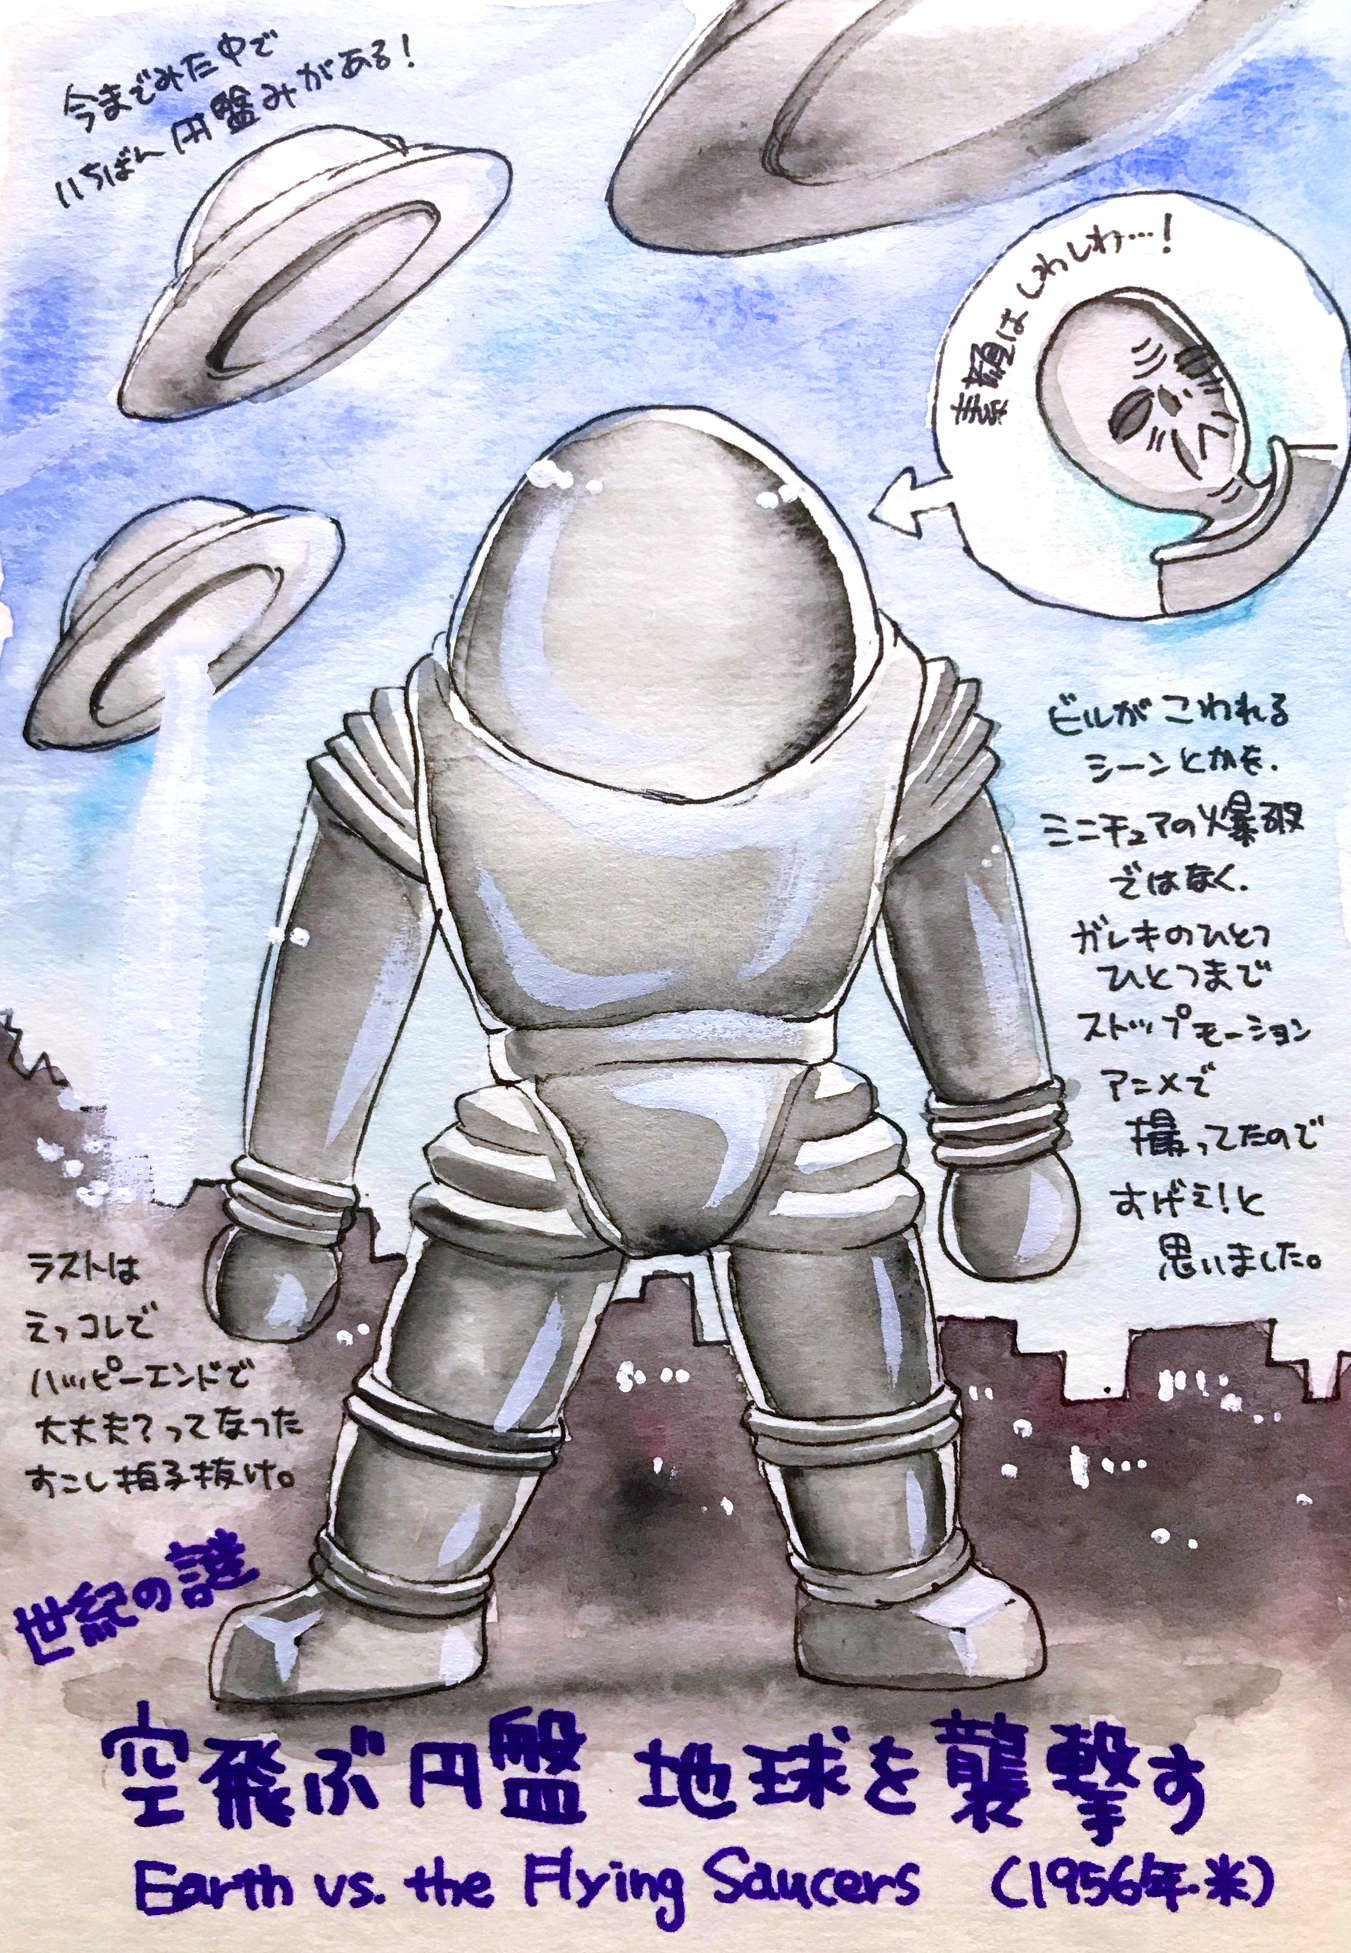 今までみた中で
いちばん円盤みがある!
素顔はしわしわ…!
ビルがこわれる
シーンとかを、
ミニチュアの爆破
ではなく、
ガレキのひとつ
ひとつまで
ストップモーション
アニメで
撮ってたので
すげえ!と
思いました。
ラストは
えっコレで
ハッピーエンドで
大丈夫?ってなった
すこし拍子抜け。
世紀の謎
空飛ぶ円盤 地球を襲撃す
Earth vs. the Flying Saucers (1956年・米)